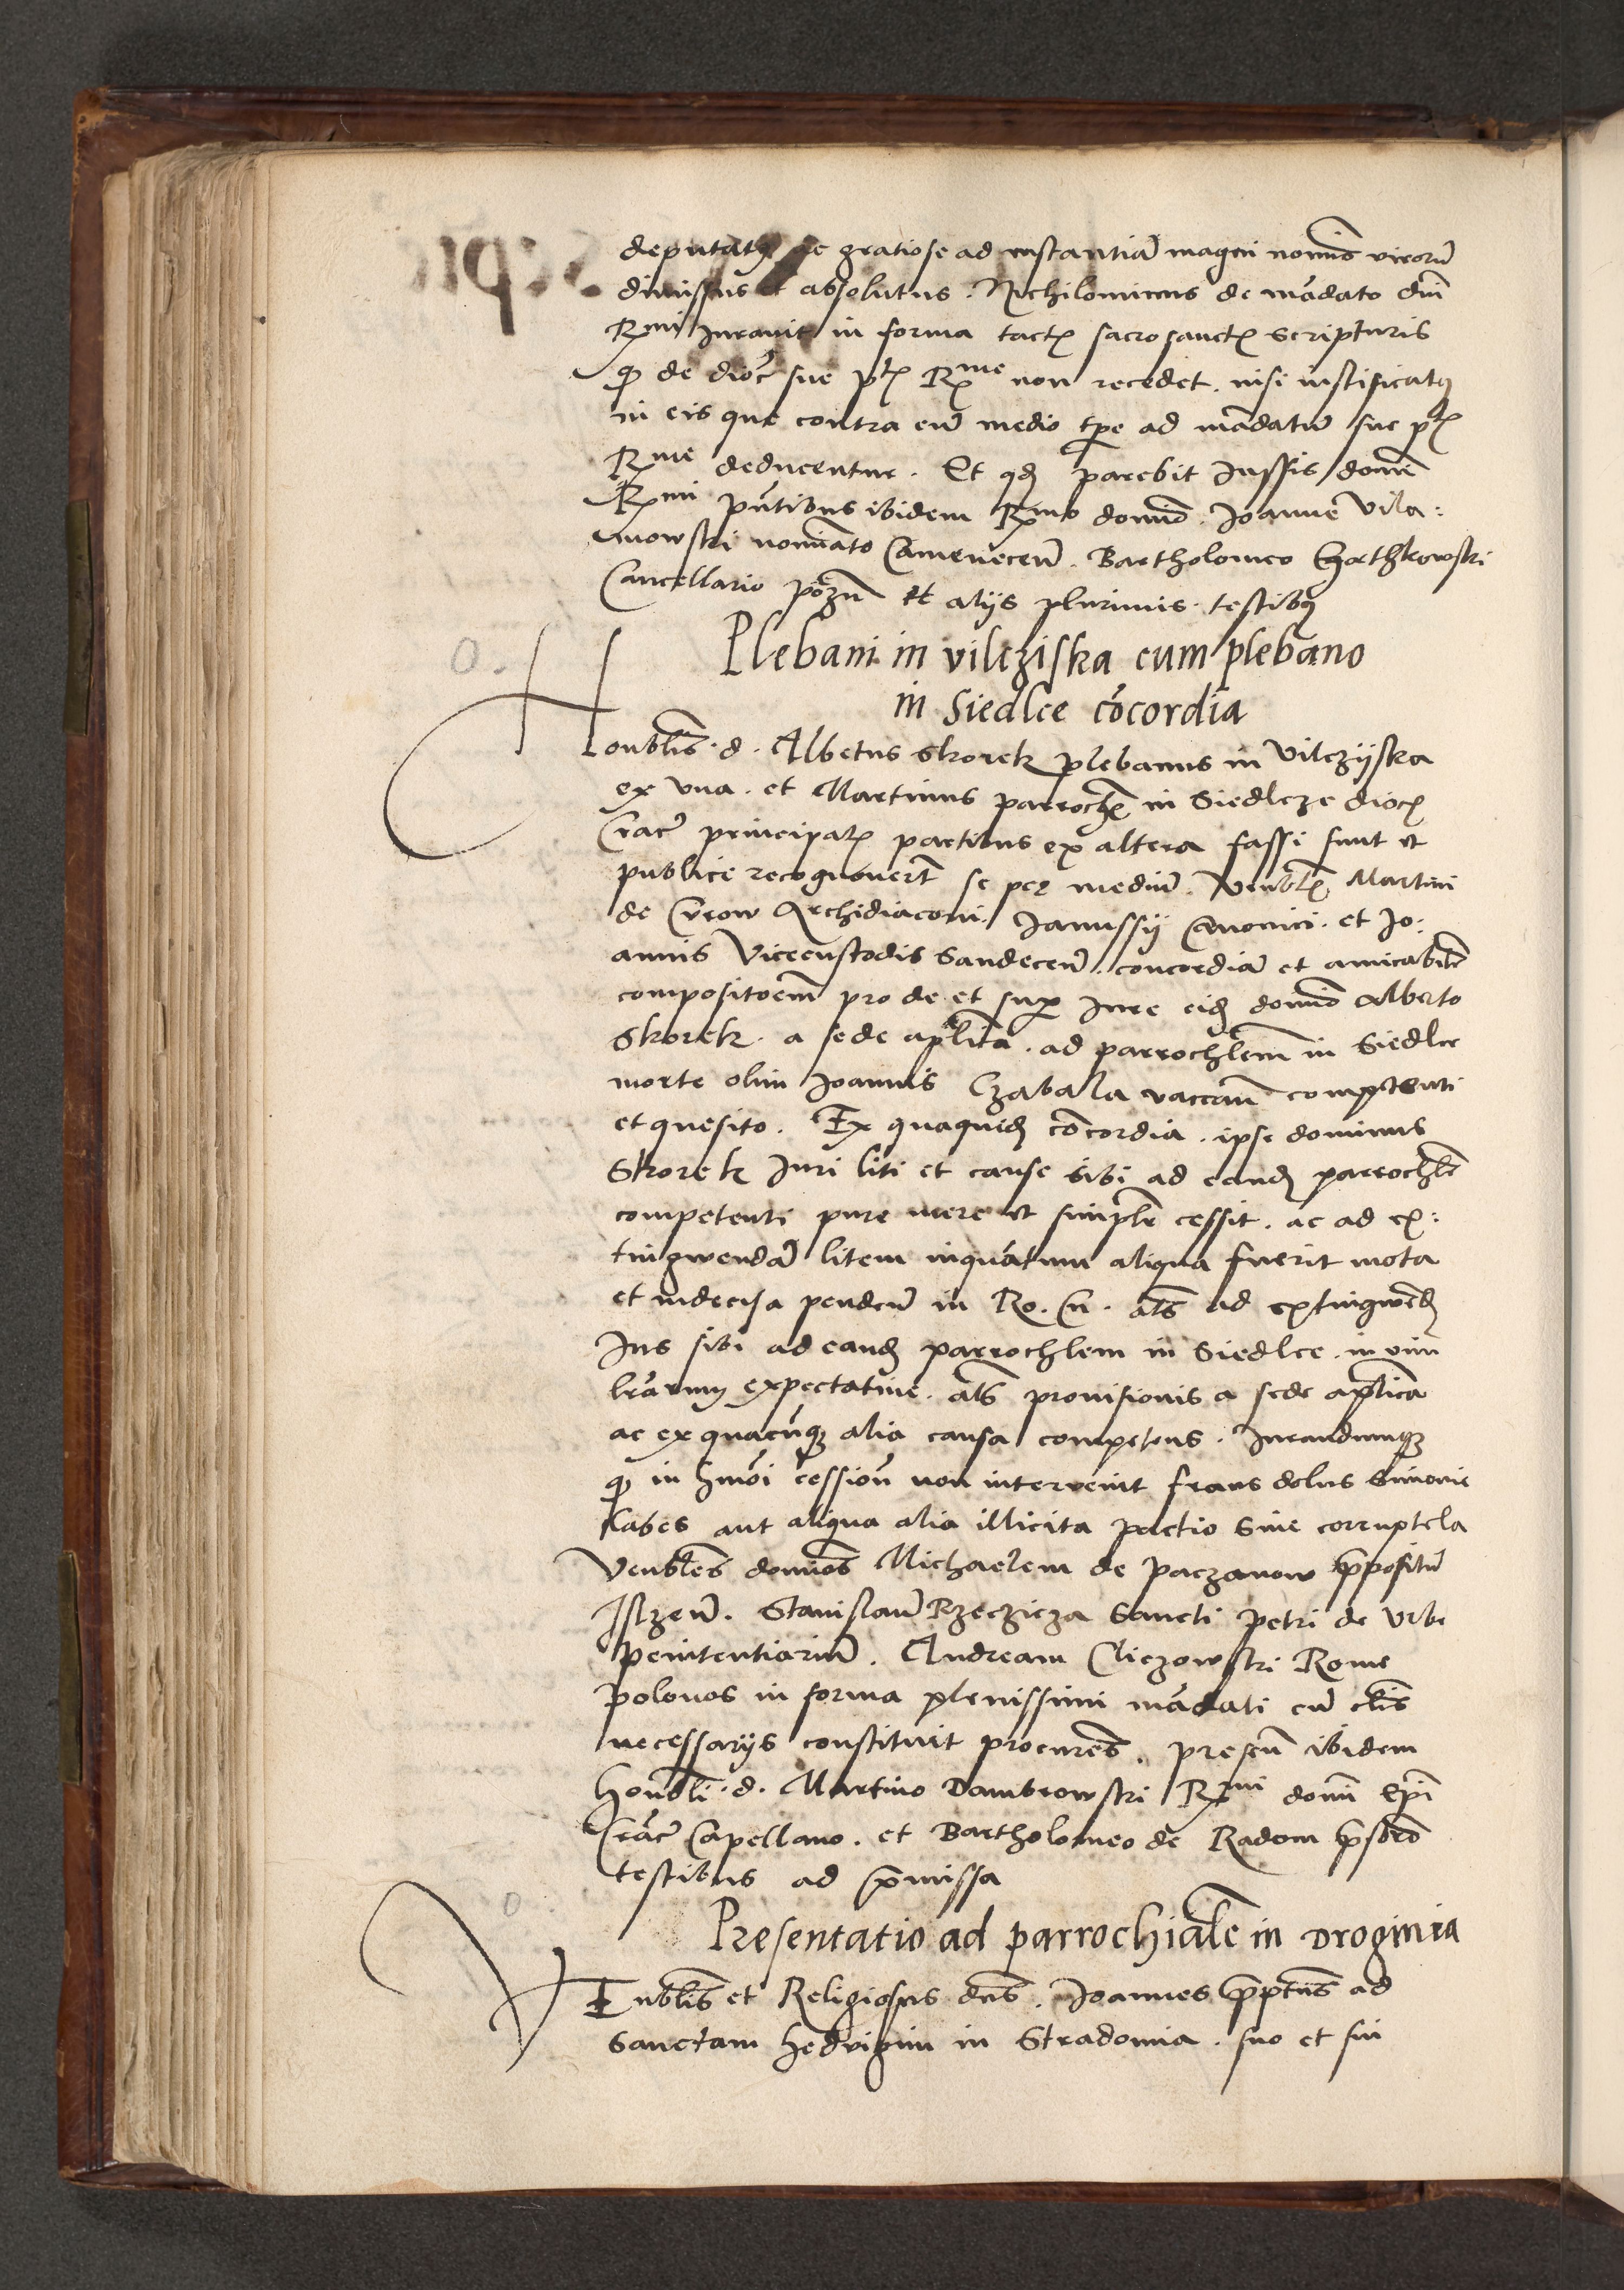 deputatus ac gratiose ad instantiã magni nomĩs virorũ
dimissus et absolutus. Nichilominus de mãdato dm̃
Rmi Juravit in forma tactꝭ sacrosanctꝭ scripturis
ꝙ de dioc̃ sue ptꝭ Rme non recedet. nisi iustificatꝰ
in eis que contra eũ medio tpe ad mãdatũ sue ptꝭ
Rme deducentur. Et qꝺ parebit Jussis domĩ
Rmi pñtibus ibidem Rmo domĩo. Joanne Vila:
mowski nomĩato Camenecen̄. Bartholomeo
Cancellario pozñ et alijs plurimis testibꝰ
Plebani in vilcziska cum plebano
in Siedlce cõcordia
Honblis. d. Albertus Skorek plebanus in Vilczijska
ex vna. et Martinus parrochꝭ in Siedlcze diocꝭ
Crac̃ principalꝭ partibus ex altera fassi sunt et
publice recognovert̃ se per mediũ. Venblꝭ Martini
de Cirow Archidiaconi. Janussij Canonici. et Jo:
annis Vicecustodis Sandecen̄. concordiã et amicabilẽ
compositoem̃ pro de et sup Jure eidꝫ domĩo Alberto
Skorek. a sede aplica. ad parrochlem̃ in Siedlce
morte olim Joannis Czabala vacan̄ competenti
et quesito. Ex quaquidꝫ cõcordia. ipse dominus
Skorek Juri liti et cause sibi ad eandꝫ parrochlẽ
competenti pure mere et simplr̃ cessit. ac ad ex:
tingwendã litem inquãtum aliqua fuerit mota
et indecisa penden̄ in Ro. Cu. als̃ ad extingwẽdꝫ
Jus sibi ad eandꝫ parrochlem in Siedlce. in vim
lrãrum expectative. als̃ provisionis a sede aplica
ac ex quacũqꝫ alia causa competens. Jurandumqꝫ
ꝙ in hmõi cession̄ non intervenit fraus dolus Simonie
labes aut aliqua alia illicita pactio sive corruptela
Venbles domĩos Michaelem de Paczanow p̃positũ
Ilzen̄. Stanislaũ Rzeczicza Sancti Petri de Urbe
penitentiariũ. Andream Cliczowski Rome
polonos in forma plenissimi mãdati cũ clis̃
necessarijs constituit procures̃. presen̄ ibidem
Honbli. d. Martino Dambrowski Rmi domĩ Epĩ
Crac̃ Capellano. et Bartholomeo de Radom p̃sbrõ
testibus ad p̃missa
Presentatio ad parrochialẽ in Droginia
VEnblis et Religiosus dñs. Joannes p̃ptus̃ ad
Sanctam Hedvigim in Stradomia. suo et sui